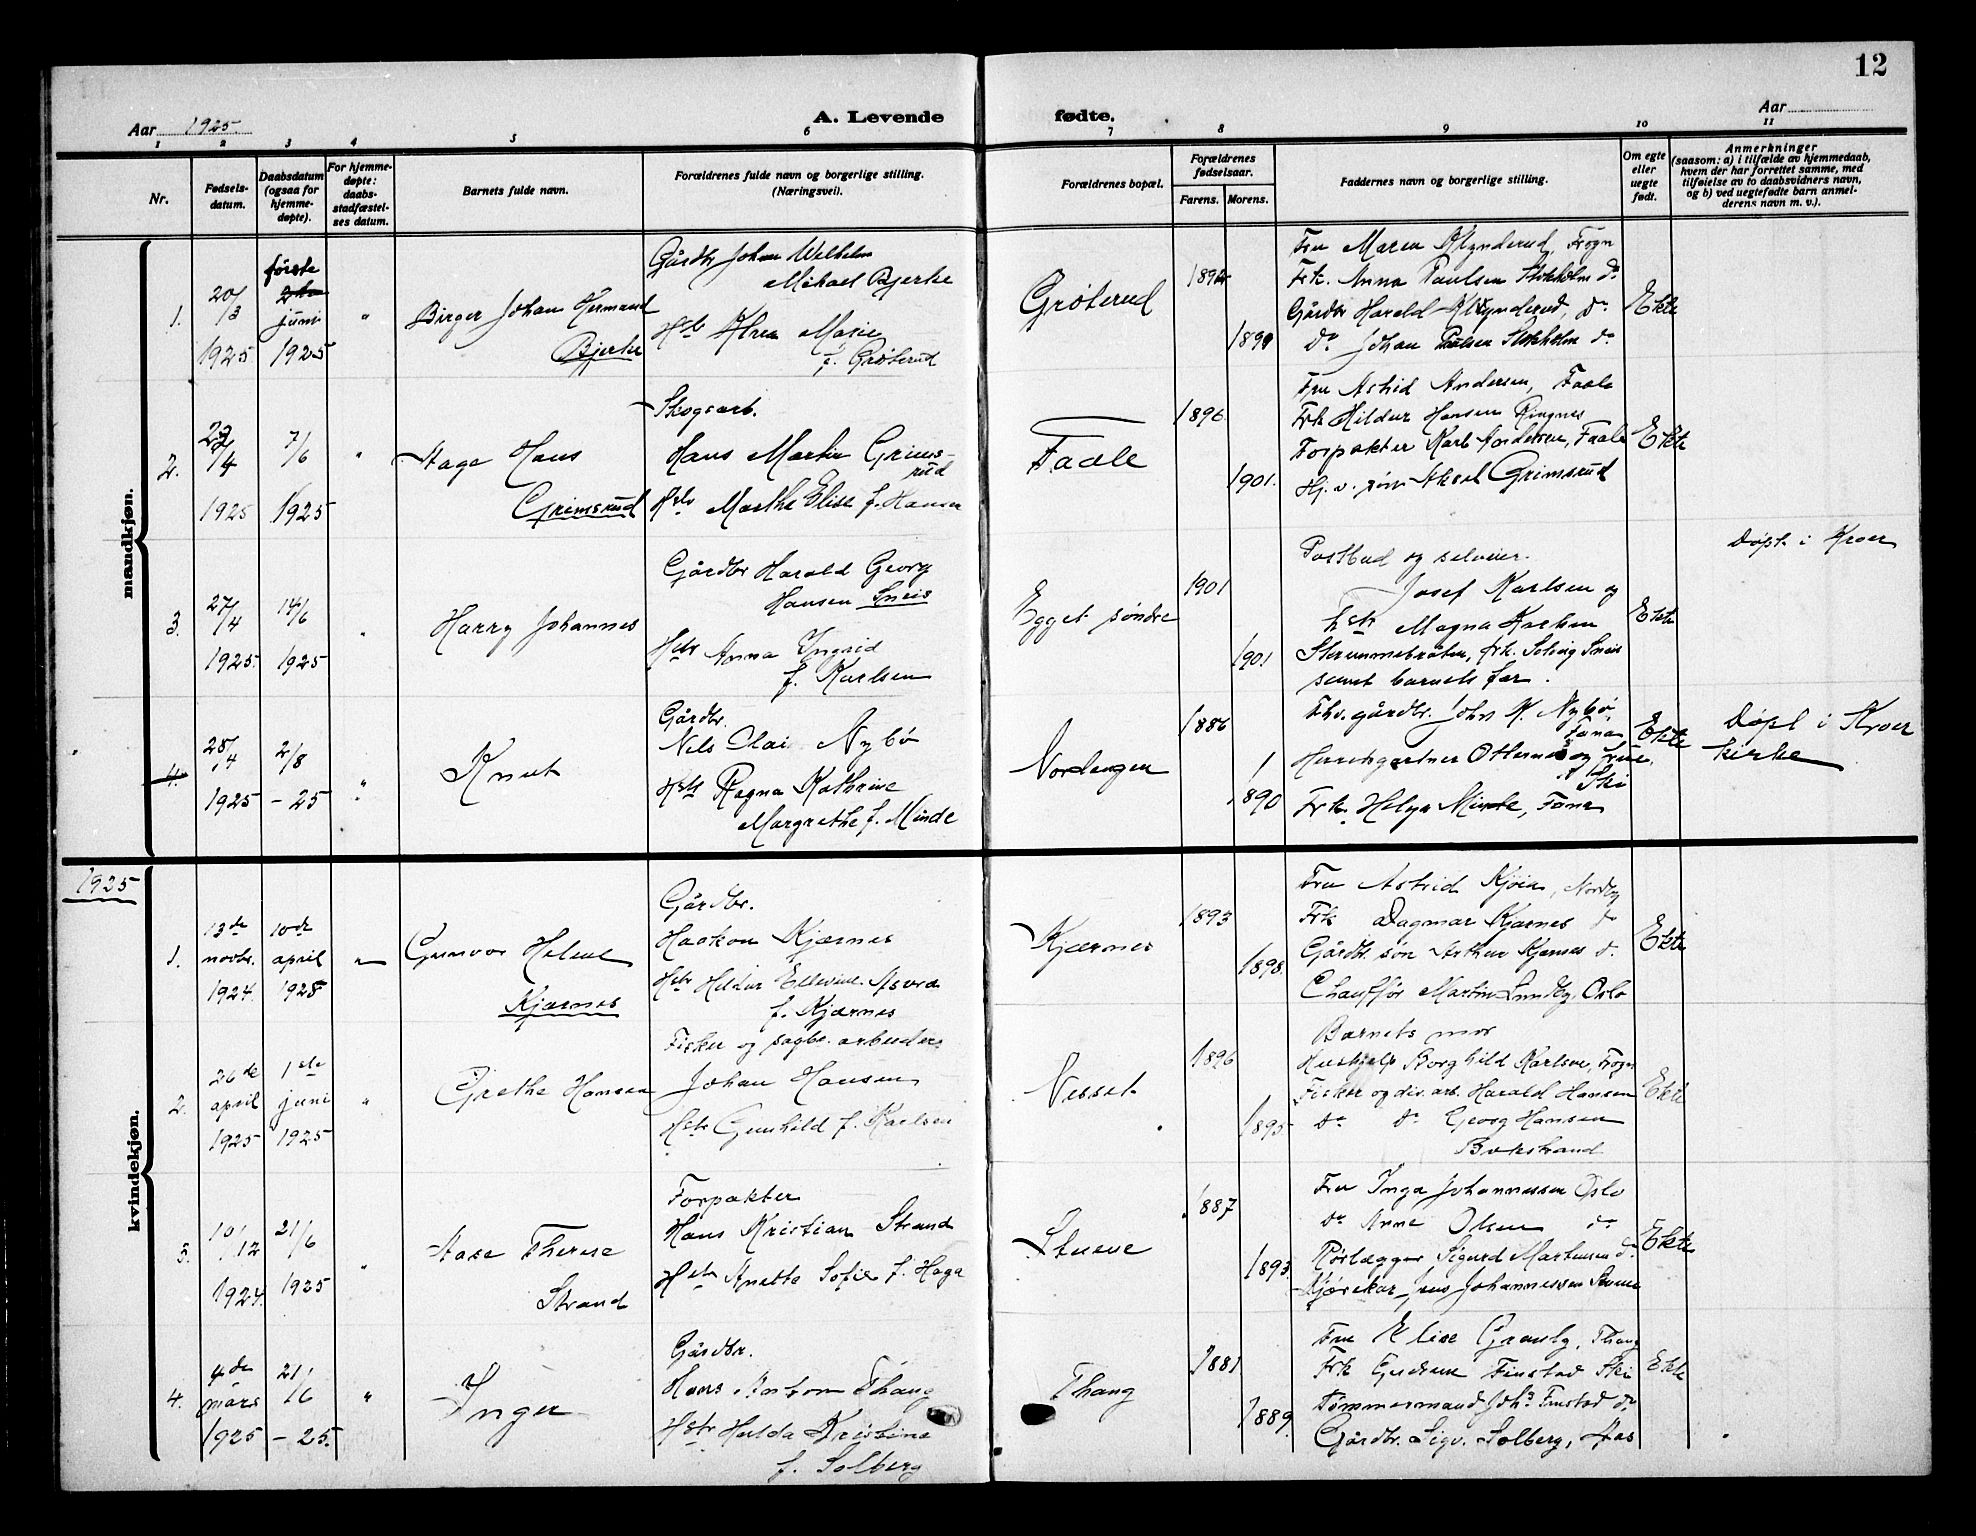 12
Aar 1925.
A. Levende fødte.
Aar
1 2 3 4 5 6 7 8 9 10 11
Nr.
Fødsels-
datum.
Daabsdatum
(ogsaa for
hjemme-
døpte).
For hjemme-
døpte:
daabs-
stadfæstel-
ses datum.
Barnets fulde navn.
Forældrenes fulde navn og borgerlige stilling.
(Næringsveil).
Forældrenes bopæl.
Forældrenes
fødselsaar.
Farens. Morens.
Faddernes navn og borgerlige stilling.
Om egte
eller
uegte
født.
Anmerkninger
(saasom: a) i tilfælde av hjemmedaab,
hvem der har forrettet samme, med
tilføielse av to daabsvidners navn,
og b) ved uegtefødte barn anmel-
derens navn m. v.).
mandkjøn.
1.
20/3
1925
første
juni
1925
"
Birger Johan Hermand
Bjerke
Gårdbr Johan Wilhelm
Mikael Bjerke
Hstr Marie
f. Grøterud
Grøterud
1892
1899
Fru Maren Klynderud, Frogn
Frk. Anna Paulsen Stokholm do
Gårdbr Harald Klynderud, do
do Johan Paulsen Stokholm do
Ekte
2.
/4
1925
7/6
1925
"
Aage Hans
Grimsrud
Skogsarb.
Hans Martin Grims-
rud
Hstr Marthe Elise f. Hansen
Faale
1896.
1901.
Fru Astrid Andersen, Faale
Frk Hildur Hansen Ringnes
Forpakter Karl Andersen, Faale
Hj. v. søn Aksel Grimsrud
Ekte
3.
27/4
1925.
14/6
1925
"
Harry Johannes
Gårdbr Harald Georg
Hansen Sneis
Hstr Anna Ingrid
f. Karlsen
Egget søndre
1901
1901
Postbud og selveier.
Josef Karlsen og
hstr Magna Karlsen
frk. Solveig Sneis
samt barnets far.
Ekte
Døpt i Kroer
4.
28/4
1925
2/8
- 25
"
Knut
Gårdbr.
Nels Olai Nybø
Hstr Ragna Kathrine
Margrethe f. Minde
Nordengen
1886
1890
Fhv. gårdbr. John N. Nybø,
Fana
Herredgartner Otternes og frue,
Ski
Frk. Helga Minde, Fana
Ekte
Døpt i Kroer
kirke
kvindekjøn.
1925
1.
13de
novbr.
1924.
10de
april
1925
"
Gunvor Helene
Kjærnes
Gårdbr.
Haakon Kjærnes
Hstr Hildur Ellevine Asvea
f. Kjærnes
Kjærnes
1893
1898.
Fru Astrid Kjøin, Nordby
Frk Dagmar Kjærnes do
Gårdbr. søn Arthur Kjærnes do
Chauffør Martin Lundby, Oslo
Barnets mor
Ekte
2.
26de
april
1925
1ste
juni
1925
"
Grethe Hansen
Fisker og sagbr. arbeider
Johan Hansen
Hstr Gunhild f. Karlsen
Nesset
1896
1895
Hushjelp Borghild Karlsen, Frogn
Fisker og div. arb. Harald Hansen
do do Georg Hansen
Bakstrand
Ekte
3.
10/12
1924.
21/6
1925
"
Aase Therese
Strand
Forpakter
Hans Kristian Strand
Hstr Anette Sofie f. Haga
Stuene
1887
1893.
Fru Inga Johannessen Oslo
do Anne Olsen do
Rørlægger Sigurd Martinsen do
Kjørekar Jens Johannessen
Ekte
4.
4de
mars
1925
21/6
- 25.
"
Inger
Gårdbr.
Hans Anton Thang
Hstr Hulda Kristine
f. Solberg
Thang
1881
1889.
Fru Elise Granby, Thang
Frk Gudrun Finstad Ski
Tømmermand Johs Finstad do
Gårdbr. Sigv. Solberg, Aas
Ekte